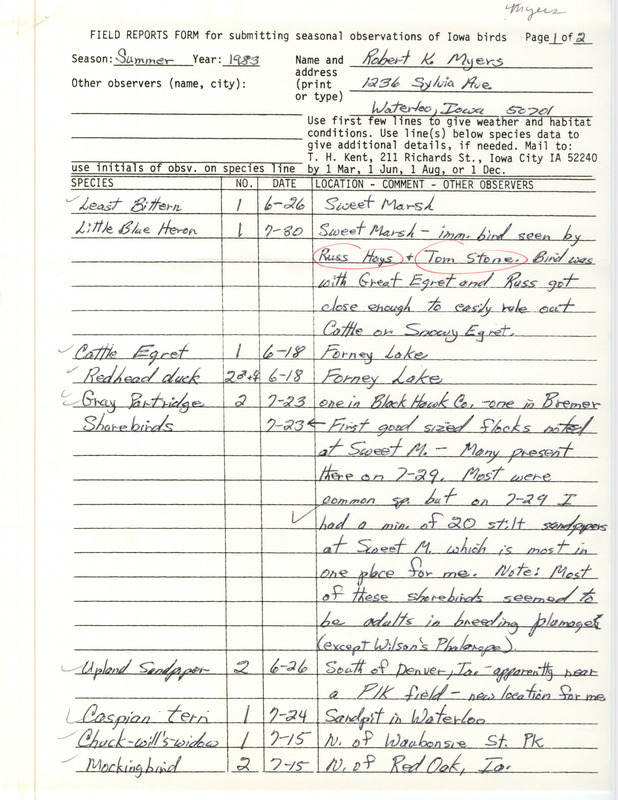 Myers
FIELD REPORTS FORM for submitting seasonal observations of Iowa birds Page 1 of 2
Season: Summer Year: 1983 Name and Robert K. Myers
address
Other observers (name, city): (print 1236 Sylvia Ave.
or type)
Waterloo, Iowa 50701
Use first few lines to give weather and habitat
conditions. Use line(s) below species data to
give additional details, if needed. Mail to:
T. H. Kent, 211 Richards St., Iowa City IA 52240
use initials of obsv. on species line by 1 Mar, 1 Jun, 1 Aug, or 1 Dec.
SPECIES NO. DATE LOCATION - COMMENT - OTHER OBSERVERS
Least Bittern 1 6-26 Sweet Marsh
Little Blue Heron 1 7-30 Sweet Marsh - imm. bird seen by
Russ Hays + Tom Stone. Bird was
with Great Egret and Russ got
close enough to easily rule out
Cattle or Snowy Egret.
Cattle Egret 1 6-18 Forney Lake
Redhead duck 2♂+♀ 6-18 Forney Lake
Gray Partridge 2 7-23 one in Black Hawk Co. -one in Bremer
Shorebirds 7-23 ← First good sized flocks noted
at Sweet M. - Many present
there on 7-29. Most were
common sp. but on 7-29 I
had a min. of 20 stilt sandpipers
at Sweet M. which is most in
one place for me. Note: Most
of these shorebirds seemed to
be adults in breeding plumage
(except Wilson's Phalarope).
Upland Sandpiper 2 6-26 South of Denver, Ia. - apparently near
a PIK field - new location for me
Caspian tern 1 7-24 Sandpit in Waterloo
Chuck-will's-widow 1 7-15 N. of Waubonsie St. PK
Mockingbird 2 7-15 N. of Red Oak, Ia.